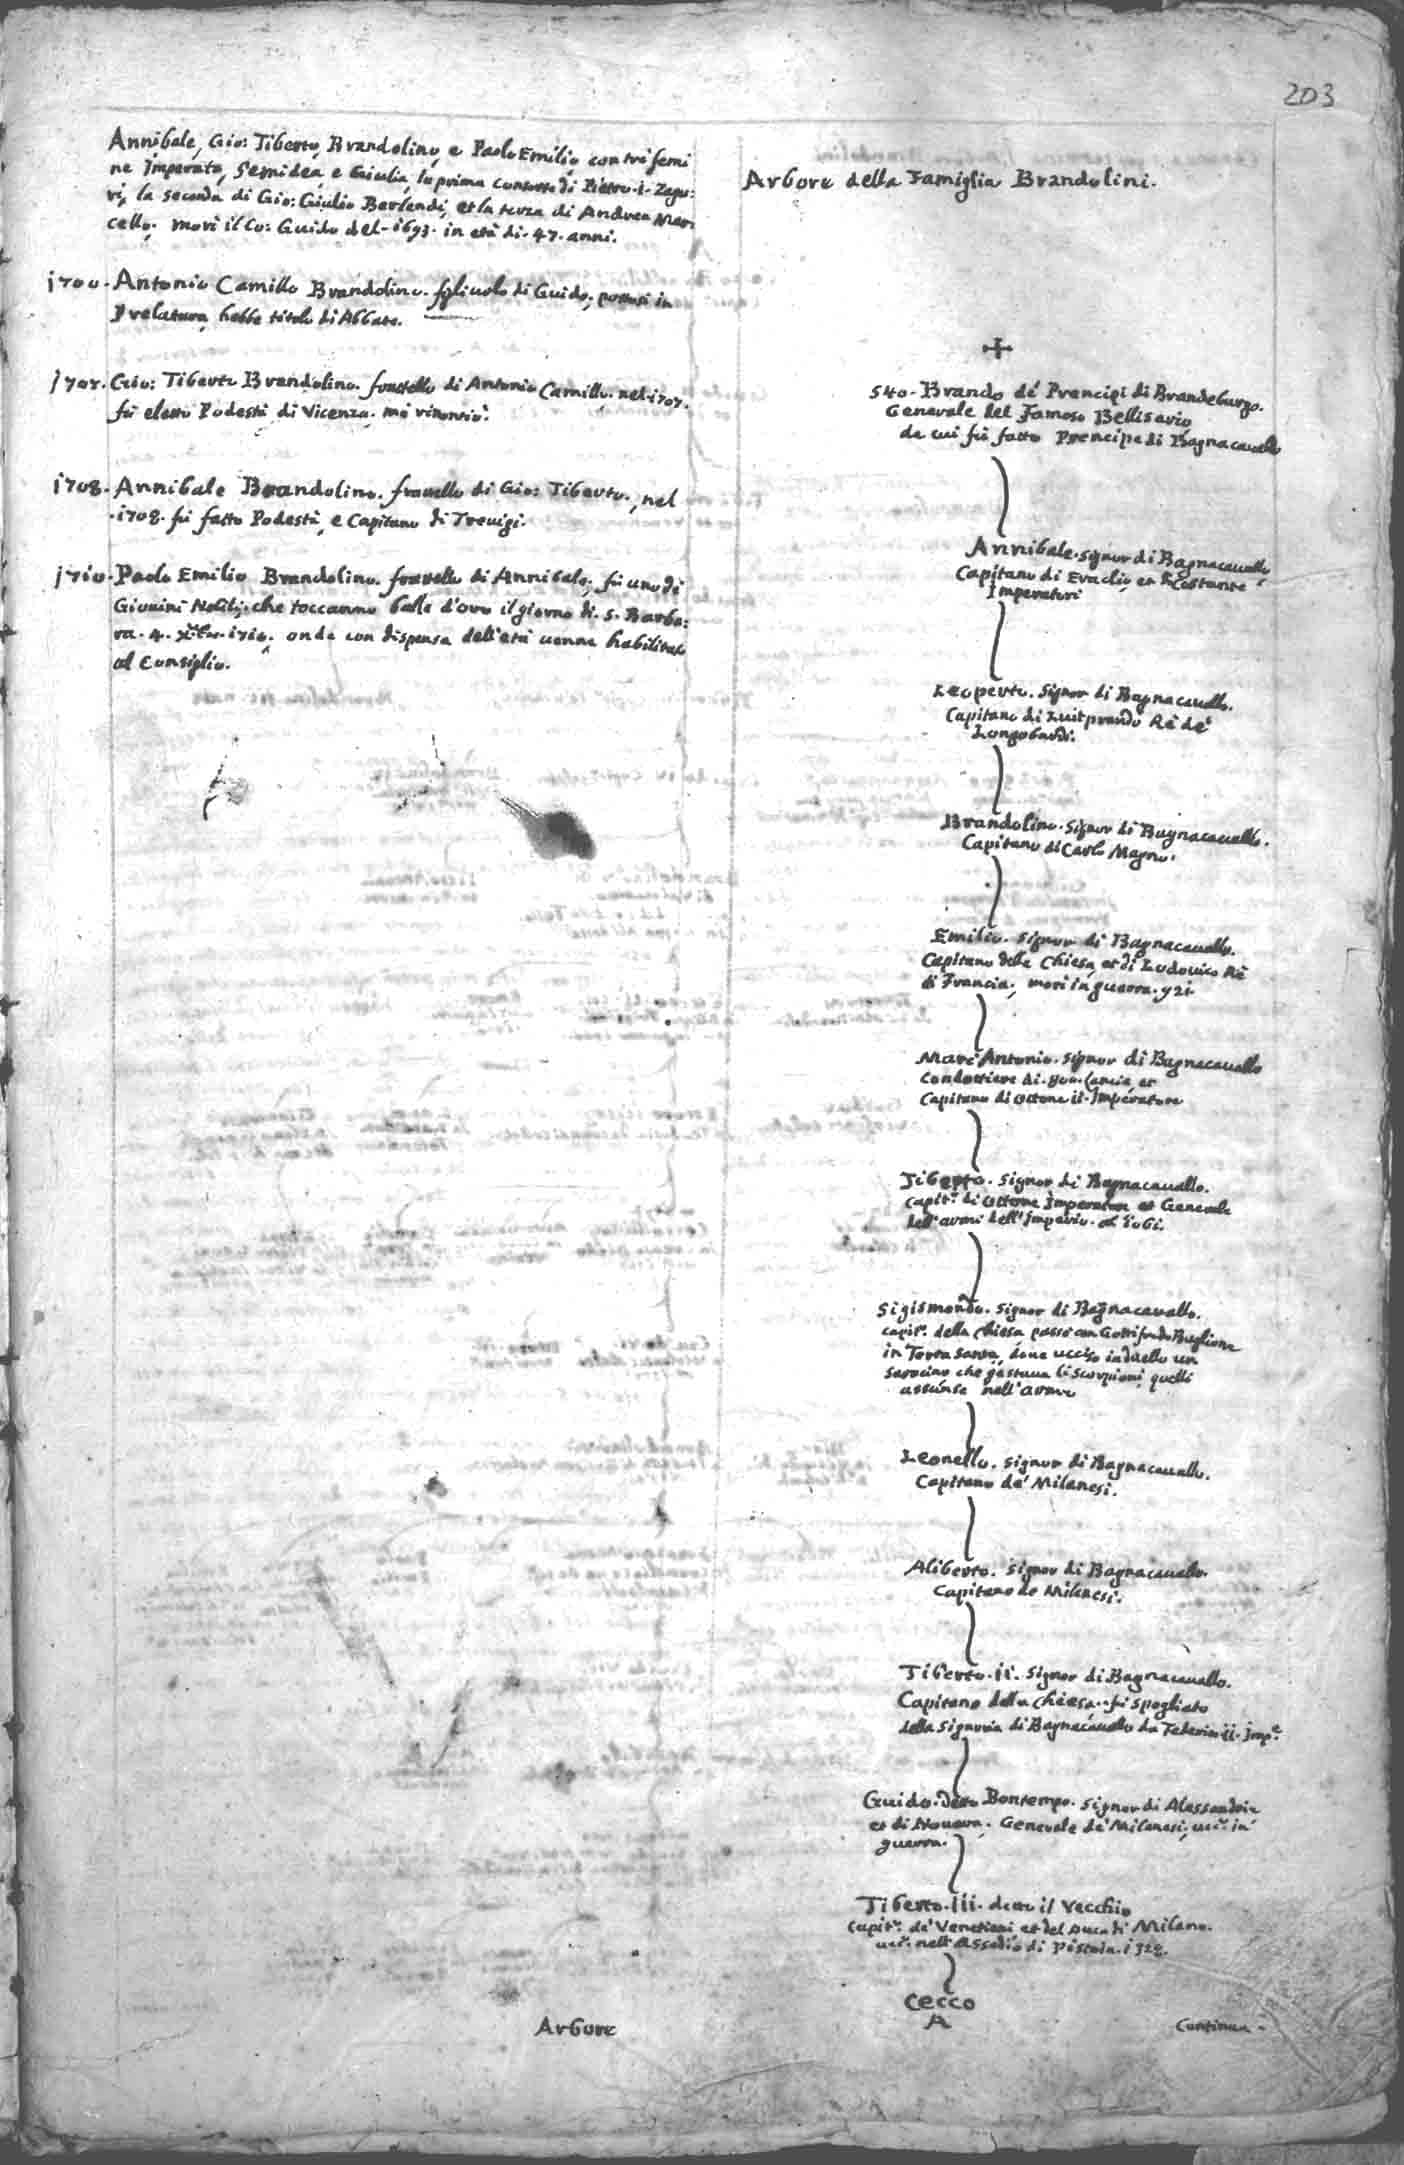 203
Annibale, Gio: Tiberto, Brandolino, e Paolo Emilio, con tré femi
ne Imperata, Semidea, e Giulia, la prima consorte di Pietro i. Zagu:
ri, la seconda di Gio: Giulio Berlendi, et la terza di Andrea Mar
cello; morì il Co: Guido del 1693. in età di 47. anni.
1700. Antonio Camillo Brandolino. figliuolo di Guido, postosi in
Prelatura, hebbe titolo di Abbate.
Gio: Tiberto Brandolino. fratello di Antonio Camillo. nel 1707.
fù eletto Podestà di Vicenza. mà rinontiò.
1708. Annibale Brandolino. fratello di Gio: Tiberto, nel
1708. fù fatto Podestà, e Capitano di Trevigi.
1710. Paolo Emilio Brandolino. fratello di Annibale, fù uno di
Giovini Nobili, che toccarono balla d'oro il giorno di S. Barba:
ra. 4. Xbre. 1710. onde con dispensa dell'età venne habilitato
al Consiglio.
Arbore
Arbore della Famiglia Brandolini.
540. Brando de' Prencipi di Brandeburgo.
Generale del Famoso Bellisario
da cui fù fatto Prencipe di Bagnacavallo
Annibale. signor di Bagnacavallo
Capitano di Eraclio, et di Costante
Imperatori
Leoperto. Signor di Bagnacavallo.
Capitano di Luitprando Rè de'
Longobardi.
Brandolino. Signor di Bagnacavallo.
Capitano di Carlo Magno.
Emilio. Signor di Bagnacavallo.
Capitano della Chiesa, et di Ludovico Rè
di Francia; morì in guerra. 921.
Marc'Antonio. Signor di Bagnacavallo
Condottiere di 800. Lancie, et
Capitano di Ottone ii. Imperatore
Tiberto. Signor di Bagnacavallo.
Capit.o di Ottone Imperatore et Generale
dell'armi dell'Imperio.
Sigismondo. Signor di Bagnacavallo.
Capit.o della Chiesa passò con Gottifredo Buglione
in Terra Santa, dove ucciso in duello un
Saracino che portava li Scorpioni, quelli
assunse nell'arme
Leonello. signor di Bagnacavallo.
Capitano de' Milanesi.
Aliberto. Signor di Bagnacavallo.
Capitano de Milanesi.
Tiberto. ii. Signor di Bagnacavallo.
Capitano della Chiesa. fù spogliato
della signoria di Bagnacavallo da Federico ii. Imp.e
Guido. detto Bontempo. Signor di Alessandria
et di Novara. Generale de' Milanesi; ucc.o in
guerra.
Tiberto. iii. detto il Vecchio
Capit.o de' Venetiani et del Duca di Milano.
ucc.o nell'Assedio di Pistoia. 1328.
Cecco
A
Continua